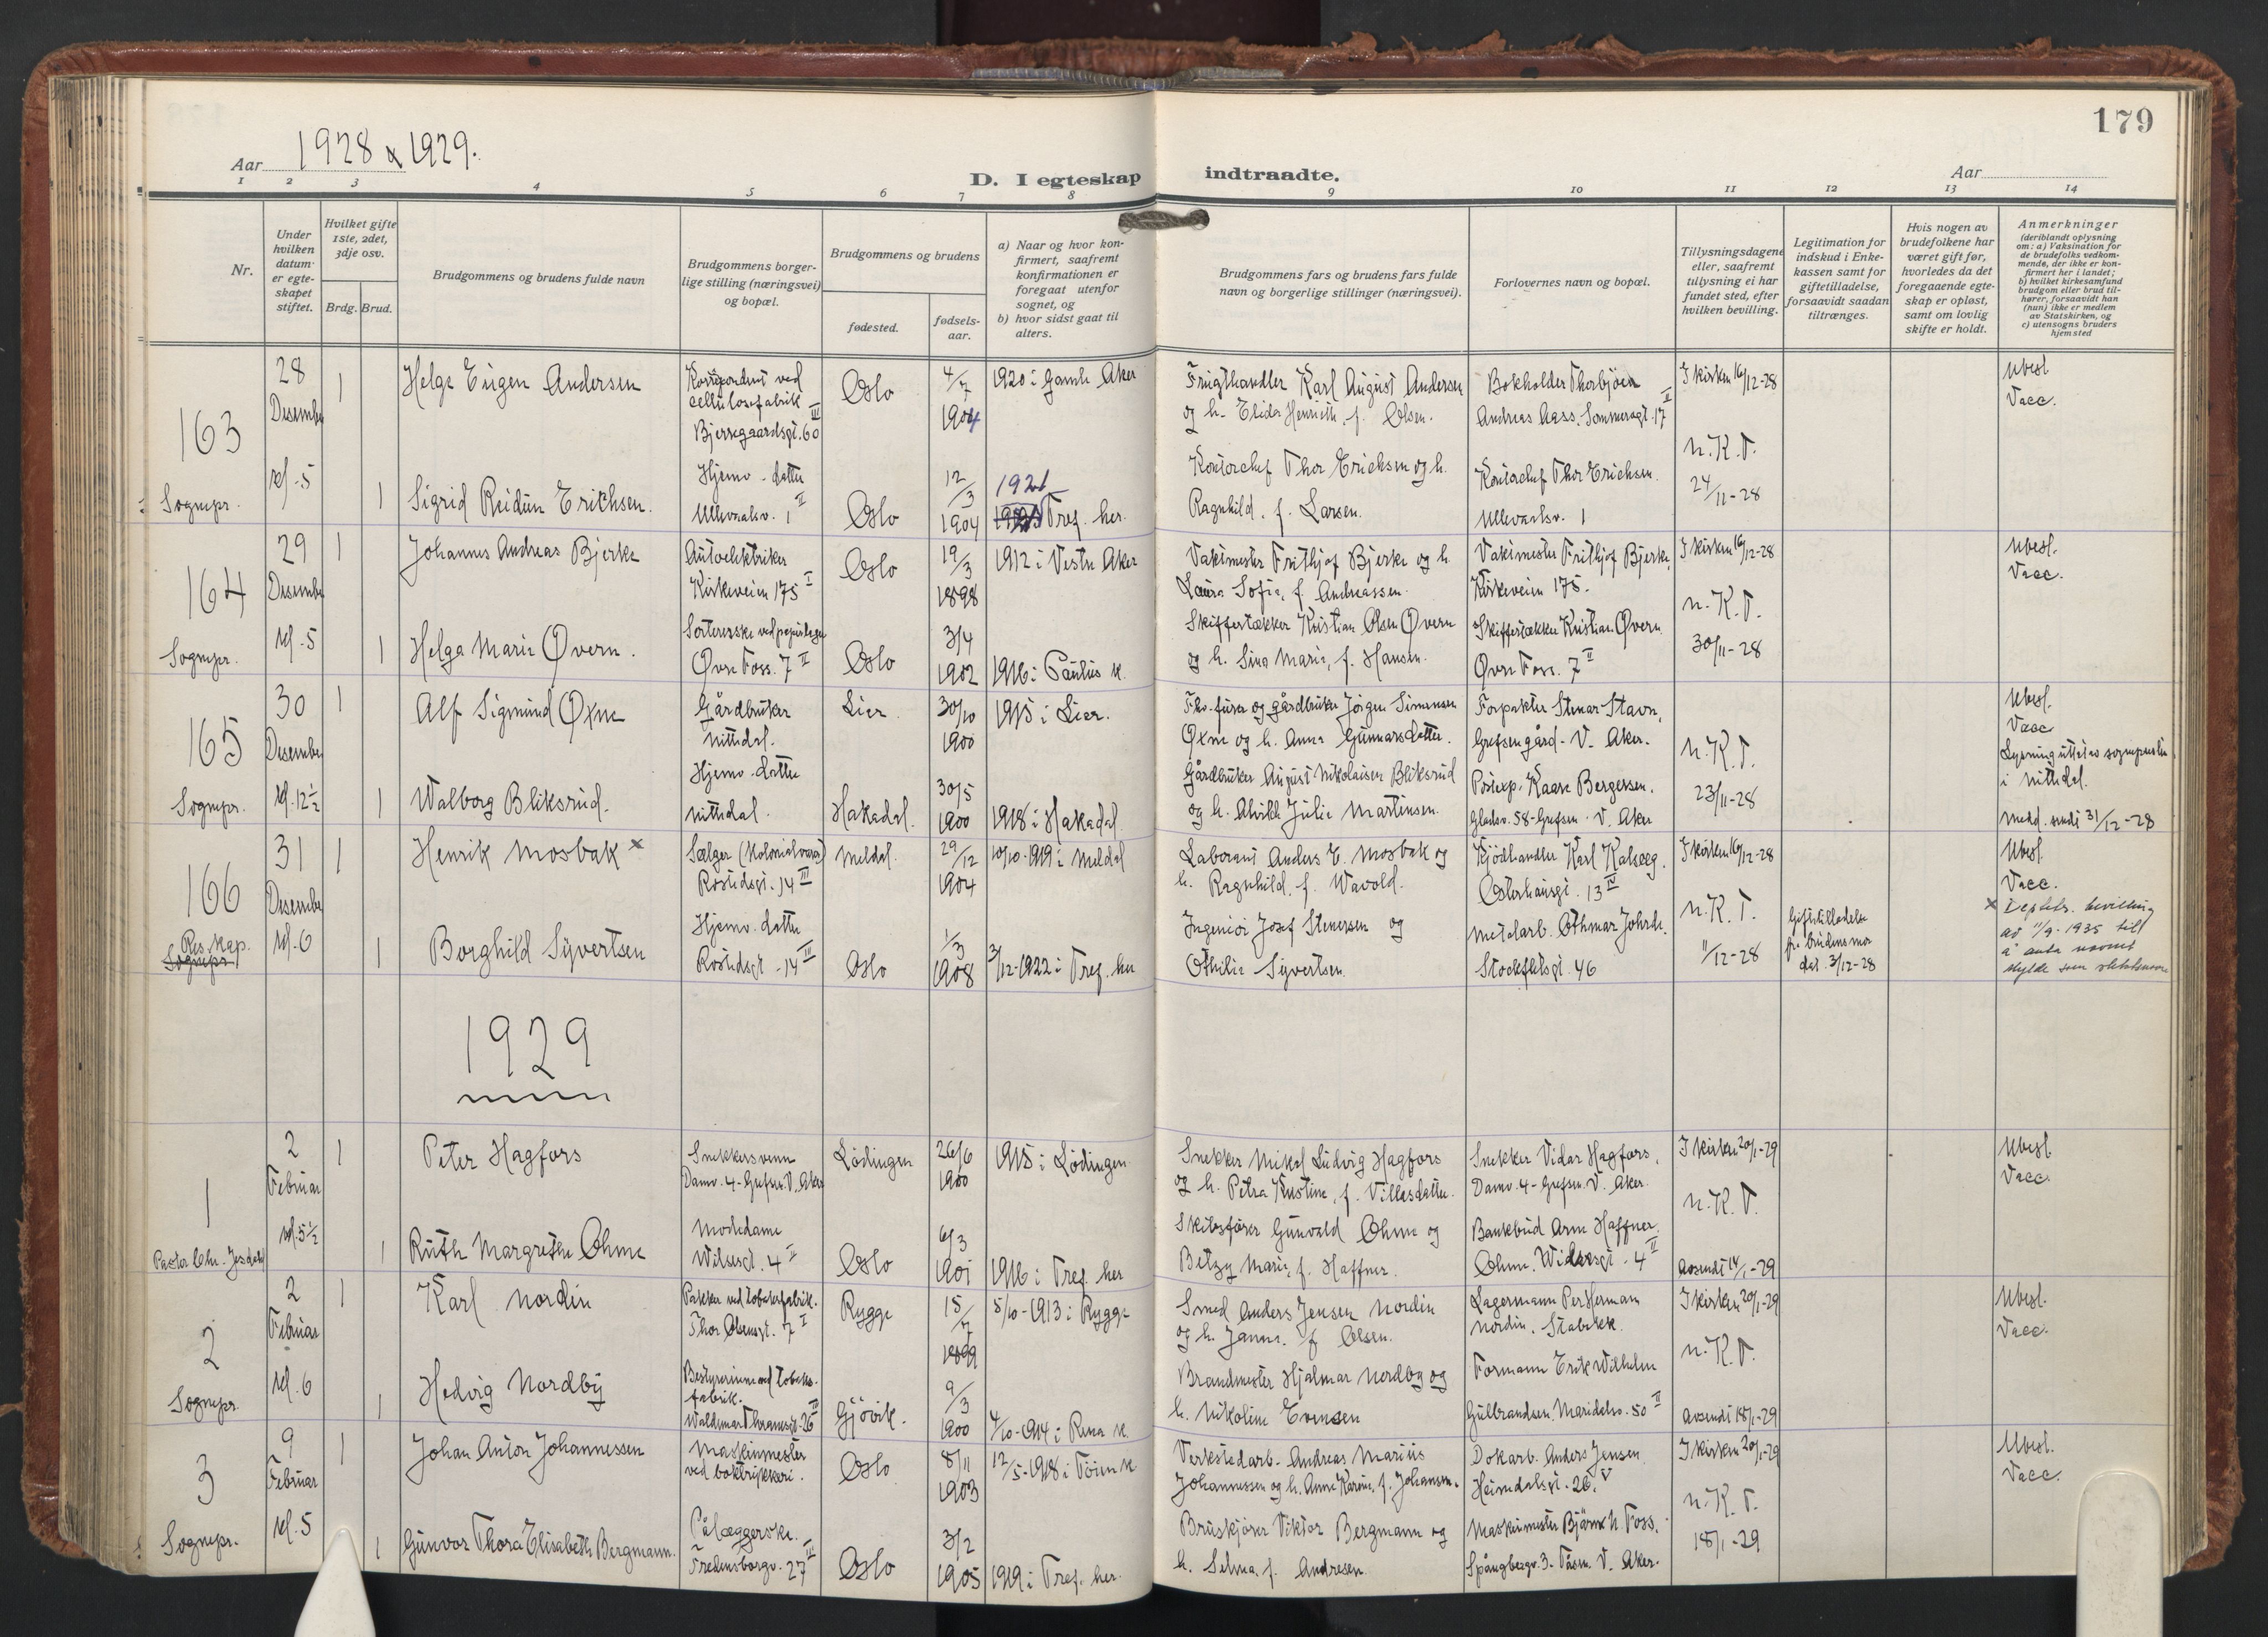 179
Aar 1928 & 1929.
D. I egteskap indtraadte.
Aar
1 2 3 4 5 6 7 8 9 10 11 12 13 14
Nr.
Under hvilken datum er egte-skapet stiftet.
Hvilket gifte 1ste, 2det, 3dje osv.
Brdg. Brud.
Brudgommens og brudens fulde navn
Brudgommens borger-lige stilling (næringsvei) og bopæl.
Brudgommens og brudens
fødested.
fødsels-aar.
a) Naar og hvor kon-firmert, saafremt konfirmationen er foregaat utenfor sognet, og
b) hvor sidst gaat til alters.
Brudgommens fars og brudens fars fulde navn og borgerlige stillinger (næringsvei).
Forlovernes navn og bopæl.
Tillysningsdagene eller, saafremt tillysning ei har fundet sted, efter hvilken bevilling.
Legitimation for indskud i Enke-kassen samt for giftetilladelse, forsaavidt saadan tiltrænges.
Hvis nogen av brudefolkene har været gift før, hvorledes da det foregaaende egte-skap er opløst, samt om lovlig skifte er holdt.
Anmerkninger
(deriblandt oplysning om: a) Vaksination for de brudefolks vedkom-mende, der ikke er kon-firmert her i landet;
b) hvilket kirkesamfund brudgom eller brud til-hører, forsaavidt han (hun) ikke er medlem av Statskirken, og
c) utensogns bruders hjemsted
163
28 Desember
kl. 5
Sognepr.
1
Helge Eugen Andersen
Korrespondent ved cellulosefabrik
Bjerregaardsgt. 60 III
Oslo
4/7 1904
1920 i Gamle Aker
Frugthandler Karl August Andersen
og h. Elida Henriette, f. Olsen.
Bokholder Thorbjörn
Andreas Aass. Sommerogt. 17 II
I kirken 16/12-28
N.K.T.
24/11-28
Ubesl.
Vacc.
1
Sigrid Reidun Erichsen.
Hjemv. datter
Ullevaalsv. 1 II
Oslo
12/3 1904
1921
Tref. her.
Kontorchef Thor Erichsen og h.
Ragnhild, f. Larsen.
Kontorchef Thor Erichsen.
Ullevaalsv. 1
164
29 Desember
kl. 5
Sognepr.
1
Johannes Andreas Bjerke
Autoelektriker
Kirkeveien 175 I
Oslo
19/3 1898
1912 i Vestre Aker
Vaktmester Frithjof Bjerke og h.
Laura Sofie, f. Andreassen.
Vaktmester Frithjof Bjerke,
Kirkeveien 175.
I kirken 16/12-28
N.K.T.
30/11-28
Ubesl.
Vacc.
1
Helga Marie Øvern.
Sortererske ved papirlager
Øvre Foss. 7 II
Oslo
3/4 1902
1916 i Paulus k.
Skiffertækker Kristian Olsen Øvern
og h. Lina Marie, f. Hansen.
Skiffertækker Kristian Øvern.
Øvre Foss. 7 II
165
30 Desember
kl. 12½
Sognepr.
1
Alf Sigmund Øxne
Gårdbruker
Nittedal.
Lier.
30/10 1900
1915 i Lier.
gårdbruker Jörgen Simensen
Øxne og h. Anna Gunnarsdatter.
Forpakter Stenar Stavn,
Grefsen gård - V. Aker.
N.K.T.
23/11-28
Ubesl.
Vacc
Lysning uttat av sognepresten
i Nittedal.
Medd. sendt 31/12-28
1
Walborg Bliksrud.
Hjemv. datter
Nittedal.
Hakadal.
30/5 1900
1918 i Hakadal
Gårdbruker August Nikolaisen Bliksrud
og h. Alvilde Julie Martinsen.
Postexp. Kaare Bergersen.
Gladsv. 58 - Grefsen. V. Aker
166
31 Desember
kl. 6
Res. kap.
Sognepr.
1
Henrik Mosbak x
Sælger (kolonialvarer)
Rostedsgt. 14 III
Meldal.
29/12 1904
10/10-1919 i Meldal
Laborant Anders E. Mosbak og
h. Ragnhild, f. Wavold.
Kjödhandler Karl Kalseg.
Osterhausgt. 13 IV
I kirken 16/12-28
N.K.T.
11/12-28
Giftetilladelse
fr. brudens mor
dat. 3/12-28
Ubesl.
Vacc.
x Deptets. bevilling
av 11/9-1935 til
å anta navnet
som slektsnavn
1
Borghild Syvertsen
Hjemv. datter
Rostedsgt. 14 III
Oslo
1/3 1908
3/12-1922 i Tref. her
Ingeniör Josef Stenersen og
Othilie Syvertsen.
Metalarb. Othmar Johrde.
Stockfletsgt. 46
1929
1
2 Februar
kl. 5½
Pastor Chr. Jesdahl
1
Peter Hagfors
Snekkersvenn
Damv. 4 - Grefsen. V. Aker
Lödingen
26/6 1900
1915 i Lödingen
Snekker Mikal Ludvig Hagfors
og h. Petra Kustine, f. Villasdatter.
Snekker Vidar Hagfors,
Damv. 4 - Grefsen. V. Aker.
I kirken 20/1-29
N.K.T.
Avsendt 14/1-29
Ubesl.
Vacc.
1
Ruth Margrethe Ohme
Modedame
Wilsesgt. 4 II
Oslo
6/3 1901
1916 i Tref. her
Skibsförer Gunvald Ohme og
Betzy Marie, f. Haffner.
Bankbud Arne Haffner
Ohme. Wilsesgt. 4 II
2
2 Februar
kl. 6
Sognepr.
1
Karl Nordin
Pakker ved tobaksfabrik.
Thor Olsensgt. 7 I
Rygge
15/7 1899
5/10-1913 i Rygge
Smed Anders Jensen Nordin
og h. Janna, f. Olsen.
Lagermann Per Herman
Nordin. Stabekk.
I kirken 20/1-29
N.K.T.
Avsendt 18/1-29
Ubesl.
Vacc.
1
Hedvig Nordby
Bestyrerinne ved tobaks-
fabrik.
Waldemar Thranesgt. 26 III
Gjövik.
9/3 1900
4/10-1914 i Rena k.
Brandmester Hjalmar Nordby og
h. Nikoline Evensen
Formann Erik Wilhelm
Gulbrandsen. Maridalsv. 50 II
3
9 Februar
kl. 5
Sognepr.
1
Johan Anton Johannessen
Maskinmester
ved boktrykkeri.
Oslo
8/11 1903
12/5-1918 i Töien k.
Verkstedarb. Andreas Marius
Johannessen og h. Anne Karine, f. Johansen.
Dokarb. Anders Jensen
Heimdalsgt. 26 V
I kirken 20/1-29
N.K.T.
18/1-29
Ubesl.
Vacc.
1
Gunvor Thora Elisabeth Bergmann.
Pålæggerske.
Fredensborgv. 27 III
Oslo
3/2 1905
1919 i Tref. her.
Bruskjörer Viktor Bergmann og
h. Selma, f. Andresen.
Maskinmester Bjarne h. Foss.
Spångbergv. 3. Tåsen. V. Aker.